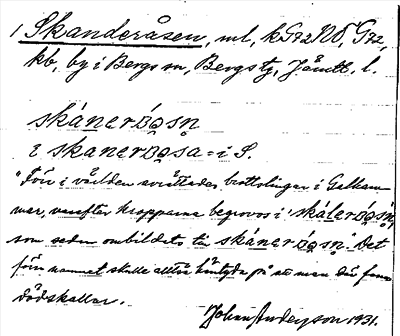 1 Skanderåsen, ml, kGr2NO, Gr2,
kb, by i Bergs sn, Bergs tg, Jämtl. l.
skánerɒ̯sn̥
i skanerɒ̯sa = i S.
"Förr i världen avrättades brottslingar i Galhammar,
mar, varefter kropparna begrovos i skálerɒ̯sn̥,
som sedan ombildats till skánerɒ̯sn̥". Det
förra namnet skulle alltså häntyda på att man där fann
dödskallar.
Johan Anderzson 1931.